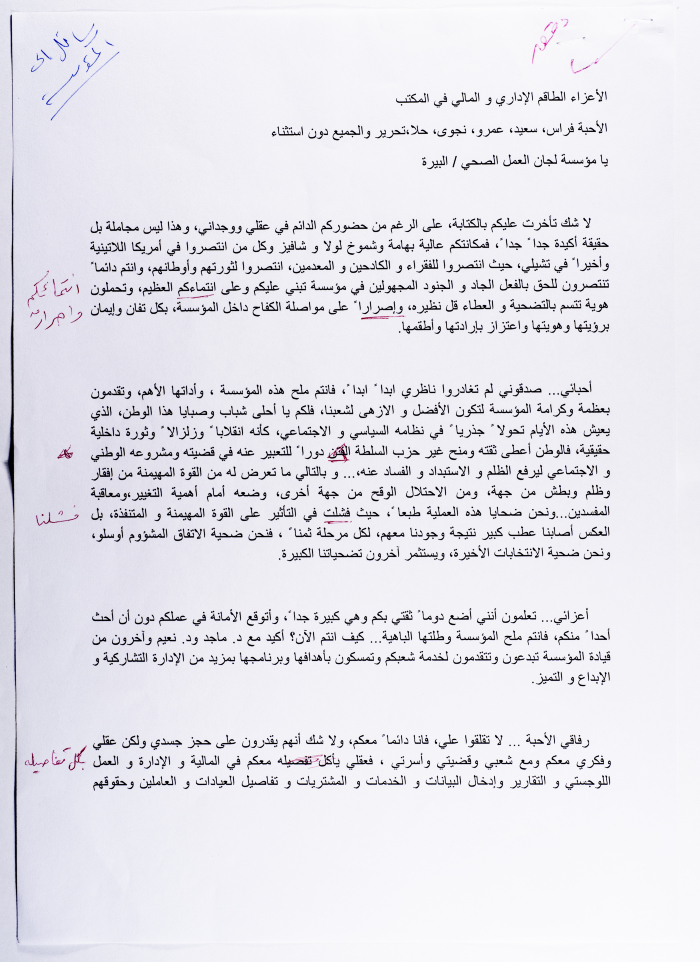 رسائل الى
دقيق
الأعزاء الطاقم الإداري و المالي في المكتب
الأحبة فراس، سعيد، عمرو، نجوى، حلا،تحرير والجميع دون استثناء
يا مؤسسة لجان العمل الصحي / البيرة
لا شك تأخرت عليكم بالكتابة، على الرغم من حضوركم الدائم في عقلي ووجداني، وهذا ليس مجاملة بل
حقيقة أكيدة جداً جداً، فمكانتكم عالية بهامة وشموخ لولا و شافيز وكل من انتصروا في أمريكا اللاتينية
وأخيراً في تشيلي، حيث انتصروا للفقراء و الكادحين و المعدمين، انتصروا لثورتهم وأوطانهم، وانتم دائماً
تنتصرون للحق بالفعل الجاد و الجنود المجهولين في مؤسسة تبني عليكم وعلى انتماءكم العظيم، وتحملون
انتمائكم
هوية تتسم بالتضحية و العطاء قل نظيره، وإصراراً على مواصلة الكفاح داخل المؤسسة، بكل تفان وإيمان
واصرار
برؤيتها وهويتها واعتزاز بإرادتها وأطقمها.
أحبائي... صدقوني لم تغادروا ناظري ابداً ابداً، فانتم ملح هذه المؤسسة ، وأداتها الأهم، وتقدمون
بعظمة وكرامة المؤسسة لتكون الأفضل و الازهى لشعبنا، فلكم يا أحلى شباب وصبايا هذا الوطن، الذي
يعيش هذه الأيام تحولاً جذرياً في نظامه السياسي و الاجتماعي، كأنه انقلاباً وزلزالاً وثورة داخلية
حقيقية، فالوطن أعطى ثقته ومنح غير حزب السلطة دوراً للتعبير عنه في قضيته ومشروعه الوطني
و الاجتماعي ليرفع الظلم و الاستبداد و الفساد عنه،... و بالتالي ما تعرض له من القوة المهيمنة من إفقار
وظلم وبطش من جهة، ومن الاحتلال الوقح من جهة أخرى، وضعه أمام أهمية التغيير،ومعاقبة
المفسدين...ونحن ضحايا هذه العملية طبعاً، حيث فشلت في التأثير على القوة المهيمنة و المتنفذة، بل
فشلنا
العكس أصابنا عطب كبير نتيجة وجودنا معهم، لكل مرحلة ثمناً ، فنحن ضحية الاتفاق المشؤوم أوسلو،
ونحن ضحية الانتخابات الأخيرة، ويستثمر آخرون تضحياتنا الكبيرة.
أعزاني... تعلمون أنني أضع دوماً ثقتي بكم وهي كبيرة جداً، وأتوقع الأمانة في عملكم دون أن أحث
أحداً منكم، فانتم ملح المؤسسة وطلتها الباهية... كيف انتم الآن؟ أكيد مع د. ماجد ود. نعيم وآخرون من
قيادة المؤسسة تبدعون وتتقدمون لخدمة شعبكم وتمسكون بأهدافها وبرنامجها بمزيد من الإدارة التشاركية و
الإبداع و التميز.
رفاقي الأحبة ... لا تقلقوا علي، فانا دائماً معكم، ولا شك أنهم يقدرون على حجز جسدي ولكن عقلي
وفكري معكم ومع شعبي وقضيتي وأسرتي ، فعقلي يأكل تفصيله معكم في المالية و الإدارة و العمل
بكل تفاصيله
اللوجستي و التقارير وإدخال البيانات و الخدمات و المشتريات و تفاصيل العيادات و العاملين وحقوقهم